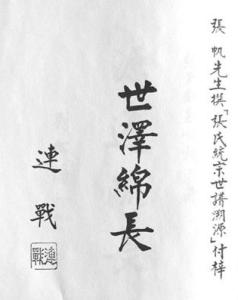 張帆先生撰「張氏統宗世譜溯源」付梓
世澤綿長
連戰
連戰